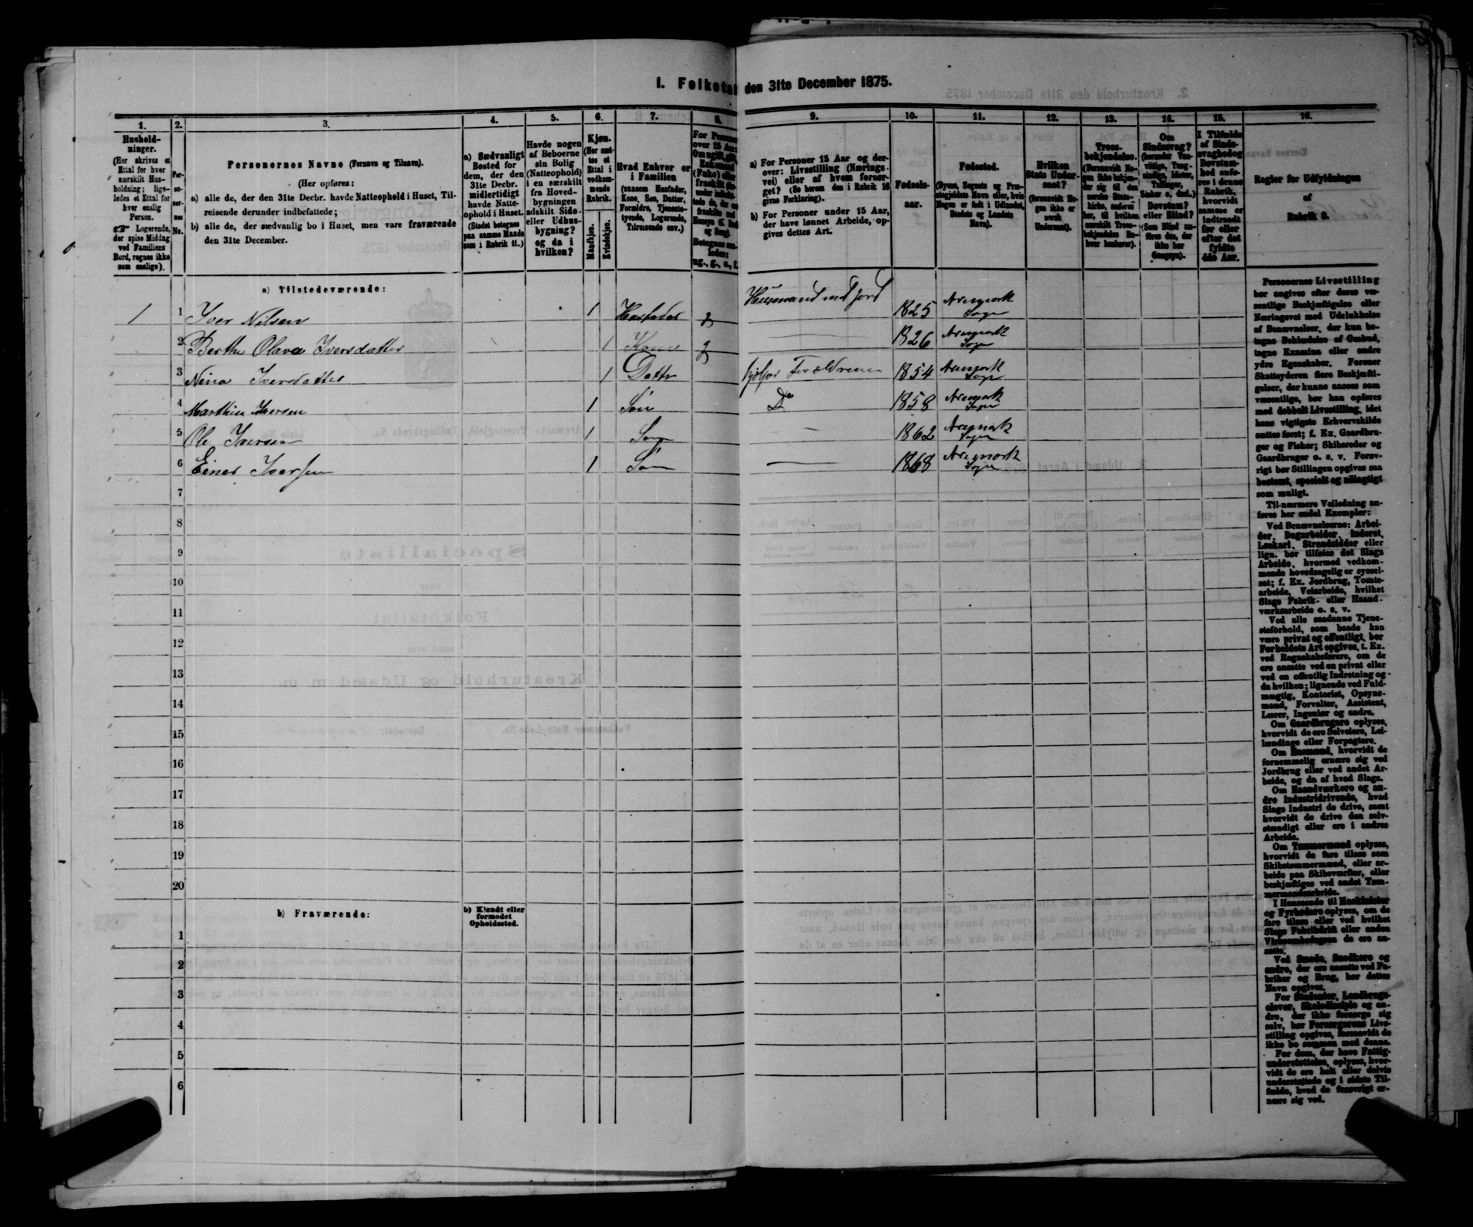 I. Folketal den 31te December 1875.
1. 2. 3. 4. 5. 6. 7. 8. 9. 10. 11. 12. 13. 14. 15. 16.
Hushold-
ninger.
(Her skrives et
Ettal for hver
særskilt Hus-
holdning; lige-
ledes et Ettal for
hver enslig
Person.
Logerende,
der spise Middag
ved Familiens
Bord, regnes ikke
som enslige).
Personernes Navne (Fornavn og Tilnavn).
(Her opføres:
a) alle de, der den 31te Decbr. havde Natteophold i Huset, Til-
reisende derunder indbefattede;
b) alle de, der sædvanlig bo i Huset, men vare fraværende
den 31te December.
a) Sædvanligt
Bosted for
dem, der den
31te Decbr.
midlertidigt
havde Natte-
ophold i Huset.
(Stedet betegnes
paa samme Maade
som i Rubrik 11.)
Havde nogen
af Beboerne
sin Bolig
(Natteophold)
i en særskilt
fra Hoved-
bygningen
adskilt Side-
eller Udhus-
bygning?
og da i
hvilken?
Kjøn.
(Her sæt-
tes et
Ettal i
vedkom-
mende
Rubrik.
Mandkjøn.
Kvindekjøn.
Hvad Enhver er
i Familien
(saasom Husfader,
Kone, Søn, Datter,
Forældre, Tjeneste-
tyende, Logerende,
Tilreisende osv.)
a) For Personer 15 Aar og der-
over: Livsstilling (Nærings-
vei) eller af hvem forsør-
get? (Se herom den i Rubrik 16
givne Forklaring).
b) For Personer under 15 Aar,
der have lønnet Arbeide, op-
gives dettes Art.
Fødsels-
aar.
Fødested.
(Byens, Sognets og Præ-
stegjældets Navn eller, hvis
Nogen er født i Udlandet,
Stedets og Landets
Navn).
Hvilken
Stats Under-
saat?
(forsaavidt No-
gen ikke er
norsk
Undersaat).
Troes-
bekjendelse.
Om
Sindssvag?
Døvstum?
eller Blind?
(Som Blind an-
føres den, der
ikke har
Gangsyn).
I Tilfælde
af Sinds-
svaghed og
Døvstum-
hed anfø-
res i denne
Rubrik,
hvorvidt
samme er
indtraadt
før eller
efter det
fyldte
4de Aar.
Regler for Udfyldningen
af
Rubrik 9.
a) Tilstedeværende:
1 1 Iver Nilsen 1 Husfader g Husmand med Jord 1825 Aremark Sogn
2 Berthe Olava Iversdatter 1 Kone g 1826 Aremark Sogn
3 Nina Iversdatter 1 Datter hjelper Forældrene 1854 Aremark Sogn
4 Marthin Iversen 1 Søn Do 1858 Aremark Sogn
5 Ole Iversen 1 Søn — 1862 Aremark Sogn
6 Einer Iversen 1 Søn — 1868 Aremark Sogn
7
8
9
10
11
12
13
14
15
16
17
18
19
20
b) Fraværende:
b) Kjendt eller
formodet
Opholdssted.
1
2
3
4
5
6
Personernes Livsstilling
bør angives efter deres væ-
sentlige Beskjæftigelse eller
Næringsvei med Udelukkelse
af Benævnelser, der kun be-
tegne Beklædelse af Ombud,
tagne Examina eller andre
ydre Egenskaber. Forener
Skatteyderen flere Beskjæfti-
gelser, der kunne ansees som
væsentlige, bør han opføres
med dobbelt Livsstilling, idet
hans vigtigste Erhvervskilde
sættes først; f. Ex. Gaardbru-
ger og Fisker; Skibsreder og
Gaardbruger o. s. v. Forøv-
rigt bør Stillingen opgives saa
bestemt, specielt og nøiagtigt
som muligt.
Til nærmere Veiledning an-
føres her endel Exempler:
Ved Benævnelserne: Arbei-
der, Dagarbeider, Inderst,
Løskarl, Strandsidder eller
lign. bør tilføies det Slags
Arbeide, hvormed vedkom-
mende hovedsagelig er syssel-
sat; f. Ex. Jordbrug, Tomte-
arbeide, Veiarbeide, hvilket
Slags Fabrik- eller Haand-
værksarbeide o. s. v.
Ved alle saadanne Tjene-
steforhold, som baade kan
være privat og offentligt, bør
Forholdets Art opgives, f. Ex.
ved Regnskabsførere, om de
ere ansatte ved en privat eller
ved en offentlig Indretning og
da hvilken; lignende ved Fuld-
mægtig, Kontorist, Opsyns-
mand, Forvalter, Assistent,
Lærer, Ingeniør og andre.
Om Gaardbrugere oplyses,
hvorvidt de ere Selveiere, Lei-
lændinge eller Forpagtere.
Om Husmænd, hvorvidt de
fornemmelig ernære sig ved
Jordbrug eller ved andet Ar-
beide, og da af hvad Slags.
Om Haandværkere og an-
dre Industridrivende, hvad
Slags Industri de drive, samt
hvorvidt de drive den selv-
stændigt eller ere i andres
Arbeide.
Om Tømmermænd oplyses,
hvorvidt de fare tilsøs som
Skibstømmermænd, eller ar-
beide paa Skibsværfter, eller
beskjæftiges ved andet Tøm-
mermandsarbeide.
I Henseende til Maskinister
og Fyrbødere oplyses, om de
fare tilsøs eller ved hvilket
Slags Fabrikdrift eller anden
Virksomhedsgren de ere an-
satte.
Ved Smede, Snedkere og
andre, der ere ansatte ved Fa-
briker og Brug, bør dettes
Navn opgives.
For Studenter, Landbrugs-
elever, Skoledisciple og an-
dre, der ikke forsørge sig
selv, bør Forsørgerens Livs-
stilling opgives, forsaavidt de
ikke bo sammen med denne.
For dem, der have Fattig-
understøttelse, oplyses, hvor-
vidt de ere helt eller delvis
understøttede og i sidste Til-
fælde, hvad de forøvrigt er-
nære sig ved.